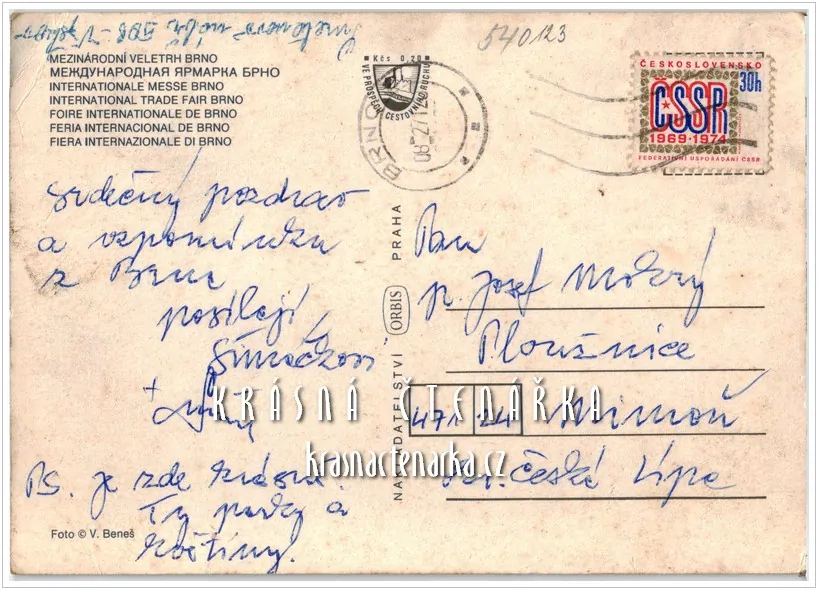 540123
MEZINÁRODNÍ VELETRH BRNO
МЕЖДУНАРОДНАЯ ЯРМАРКА БРНО
INTERNATIONALE MESSE BRNO
INTERNATIONAL TRADE FAIR BRNO
FOIRE INTERNATIONALE DE BRNO
FERIA INTERNACIONAL DE BRNO
FIERA INTERNAZIONALE DI BRNO
Kčs 0,20
VE PROSPĚCH CESTOVNÍHO RUCHU
BRNO
ČESKOSLOVENSKO
30h
ČSSR
1969-1974
FEDERATIVNÍ USPOŘÁDÁNÍ ČSSR
Srdečný pozdrav
a vzpomínku
z Brna
posílají
Šimáčkovi
+
PS. je zde krásně.
Ty parky a
květiny.
Foto © V. Beneš
NAKLADATELSTVÍ ORBIS PRAHA
Pan
p. Josef Mokrý
Ploužnice
471 24 Mimoň
Česká Lípa
KRÁSNÁ ČTENÁŘKA
krasnactenarka.cz